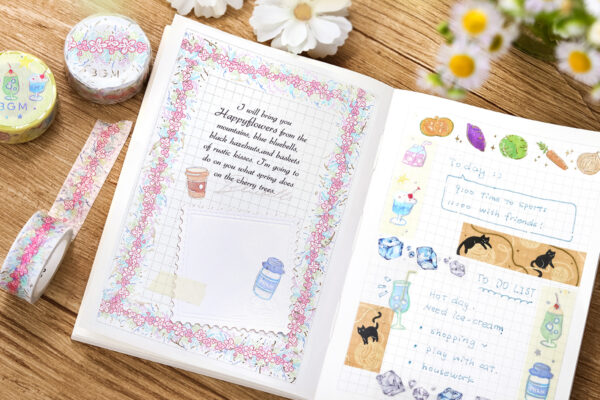 BGM
BGM
I will bring you
Happyflowers from the
mountains, blue bluebells,
black hazelnuts,and baskets
of rustic kisses. I'm going to
do on you what spring does
on the cherry trees.
Today is
good time to sports
with friends!
TO DO LIST
Hot day.
need ice-cream
• shopping
• play with cat.
• housework